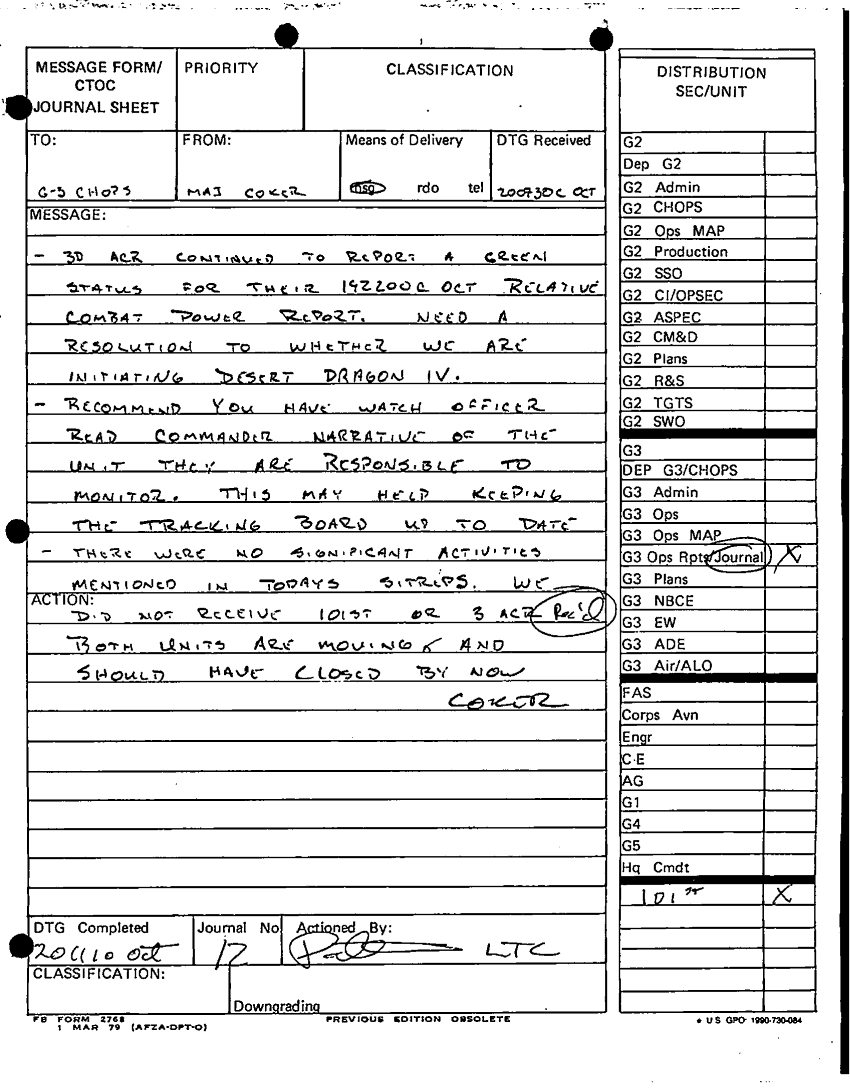 MESSAGE FORM/ CTOC JOURNAL SHEET
PRIORITY
CLASSIFICATION
TO:
G-3 CHOPS
FROM:
MAJ COKER
Means of Delivery
msg rdo tel
DTG Received
200730C OCT
MESSAGE:
- 3D ACR CONTINUED TO REPORT A GREEN
STATUS FOR THEIR 192200C OCT RELATIVE
COMBAT POWER REPORT. NEED A
RESOLUTION TO WHETHER WE ARE
INITIATING DESERT DRAGON IV.
- RECOMMEND YOU HAVE WATCH OFFICER
READ COMMANDER NARRATIVE OF THE
UNIT THEY ARE RESPONSIBLE TO
MONITOR. THIS MAY HELP KEEPING
THE TRACKING BOARD UP TO DATE
- THERE WERE NO SIGNIFICANT ACTIVITIES
MENTIONED IN TODAYS SITREPS. WE
ACTION:
DID NOT RECEIVE 101ST OR 3 ACR Rec'd
BOTH UNITS ARE MOVING AND
SHOULD HAVE CLOSED BY NOW
COKER
DTG Completed
201110 Oct
Journal No
17
Actioned By:
LTC
CLASSIFICATION:
Downgrading
FB FORM 2768
1 MAR 79 (AFZA-DPT-O)
PREVIOUS EDITION OBSOLETE
DISTRIBUTION
SEC/UNIT
G2
Dep G2
G2 Admin
G2 CHOPS
G2 Ops MAP
G2 Production
G2 SSO
G2 CI/OPSEC
G2 ASPEC
G2 CM&D
G2 Plans
G2 R&S
G2 TGTS
G2 SWO
G3
DEP G3/CHOPS
G3 Admin
G3 Ops
G3 Ops MAP
G3 Ops Rpts/Journal X
G3 Plans
G3 NBCE
G3 EW
G3 ADE
G3 Air/ALO
FAS
Corps Avn
Engr
C-E
AG
G1
G4
G5
Hq Cmdt
101st X
* US GPO: 1990-730-084